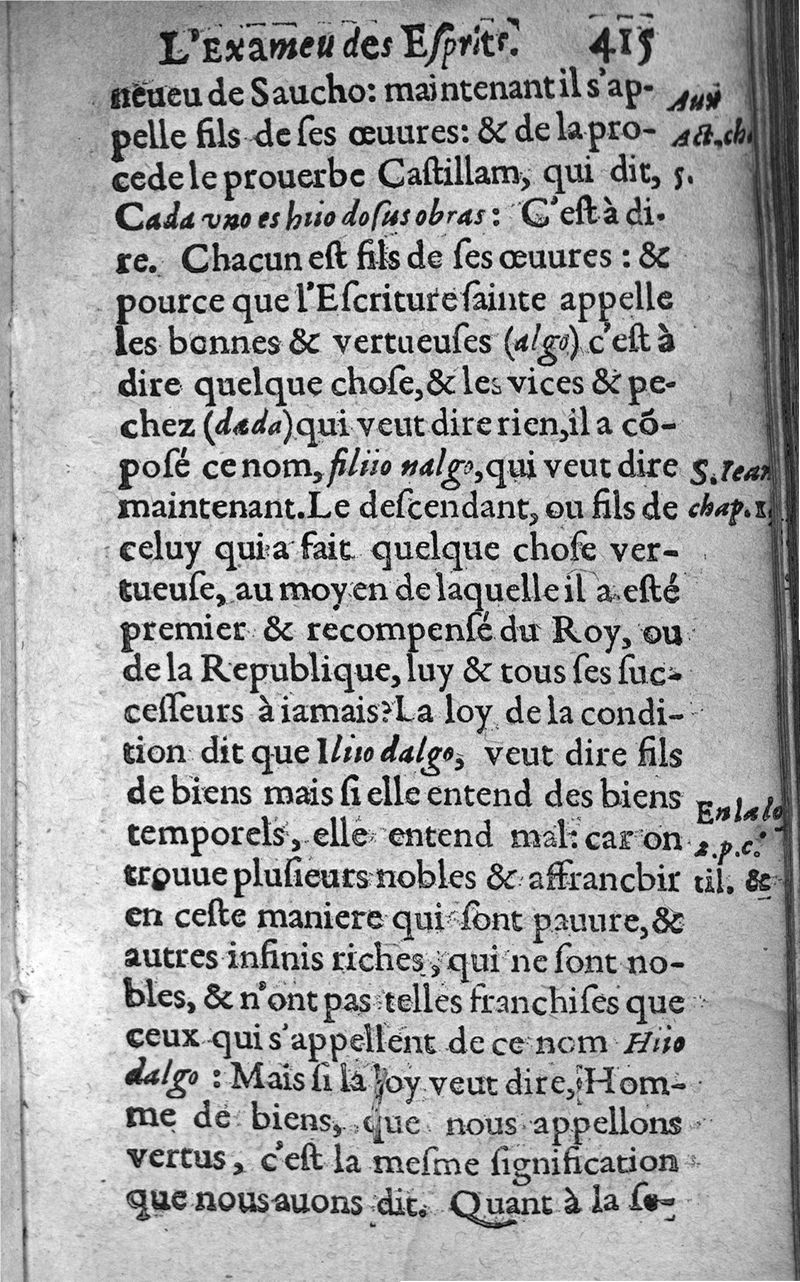 L'Exameu des Eſprits. 415
neueu de Saucho: maintenant il s'ap-
pelle fils de ſes œuures: & de la pro-
cede le prouerbe Caſtillam, qui dit,
Cada vno es hiio do ſus obras: C'eſt à di-
re. Chacun eſt fils de ſes œuures : &
pource que l'Eſcriture ſainte appelle
les bonnes & vertueuſes (algo) c'eſt à
dire quelque choſe, & les vices & pe-
chez (dada) qui veut dire rien, il a cõ-
poſé ce nom, filiio nalgo, qui veut dire
maintenant. Le deſcendant, ou fils de
celuy qui a fait quelque choſe ver-
tueuſe, au moyen de laquelle il a eſté
premier & recompenſé du Roy, ou
de la Republique, luy & tous ſes ſuc-
ceſſeurs à iamais? La loy de la condi-
tion dit que Iliio dalgo, veut dire fils
de biens mais ſi elle entend des biens
temporels, elle entend mal: car on
trouue pluſieurs nobles & affrancbir
en ceſte maniere qui ſont pauure, &
autres infinis riches, qui ne ſont no-
bles, & n'ont pas telles franchiſes que
ceux qui s'appellent de ce nom Hiio
dalgo : Mais ſi la loy veut dire, Hom-
me de biens, que nous appellons
vertus, c'eſt la meſme ſignification
que nous auons dit. Quant à la ſe-
Aux
Act. ch.
5.
S. Iean
chap. 1.
En la lo
2. p. c.
til. &